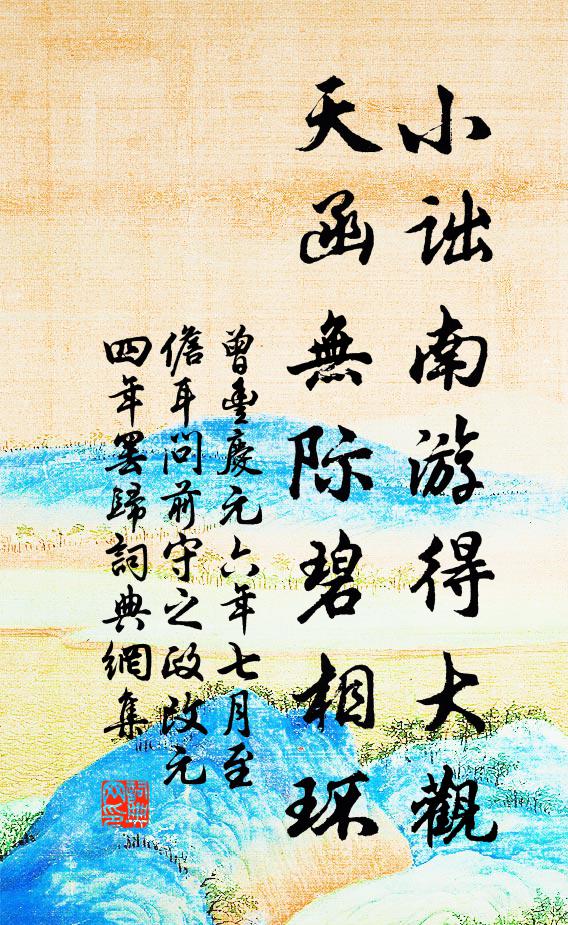 小詘南游得大觀
天函無際碧相環
曾豐慶元六年七月至
儋耳問前守之政改元
四年罷歸詞典網集